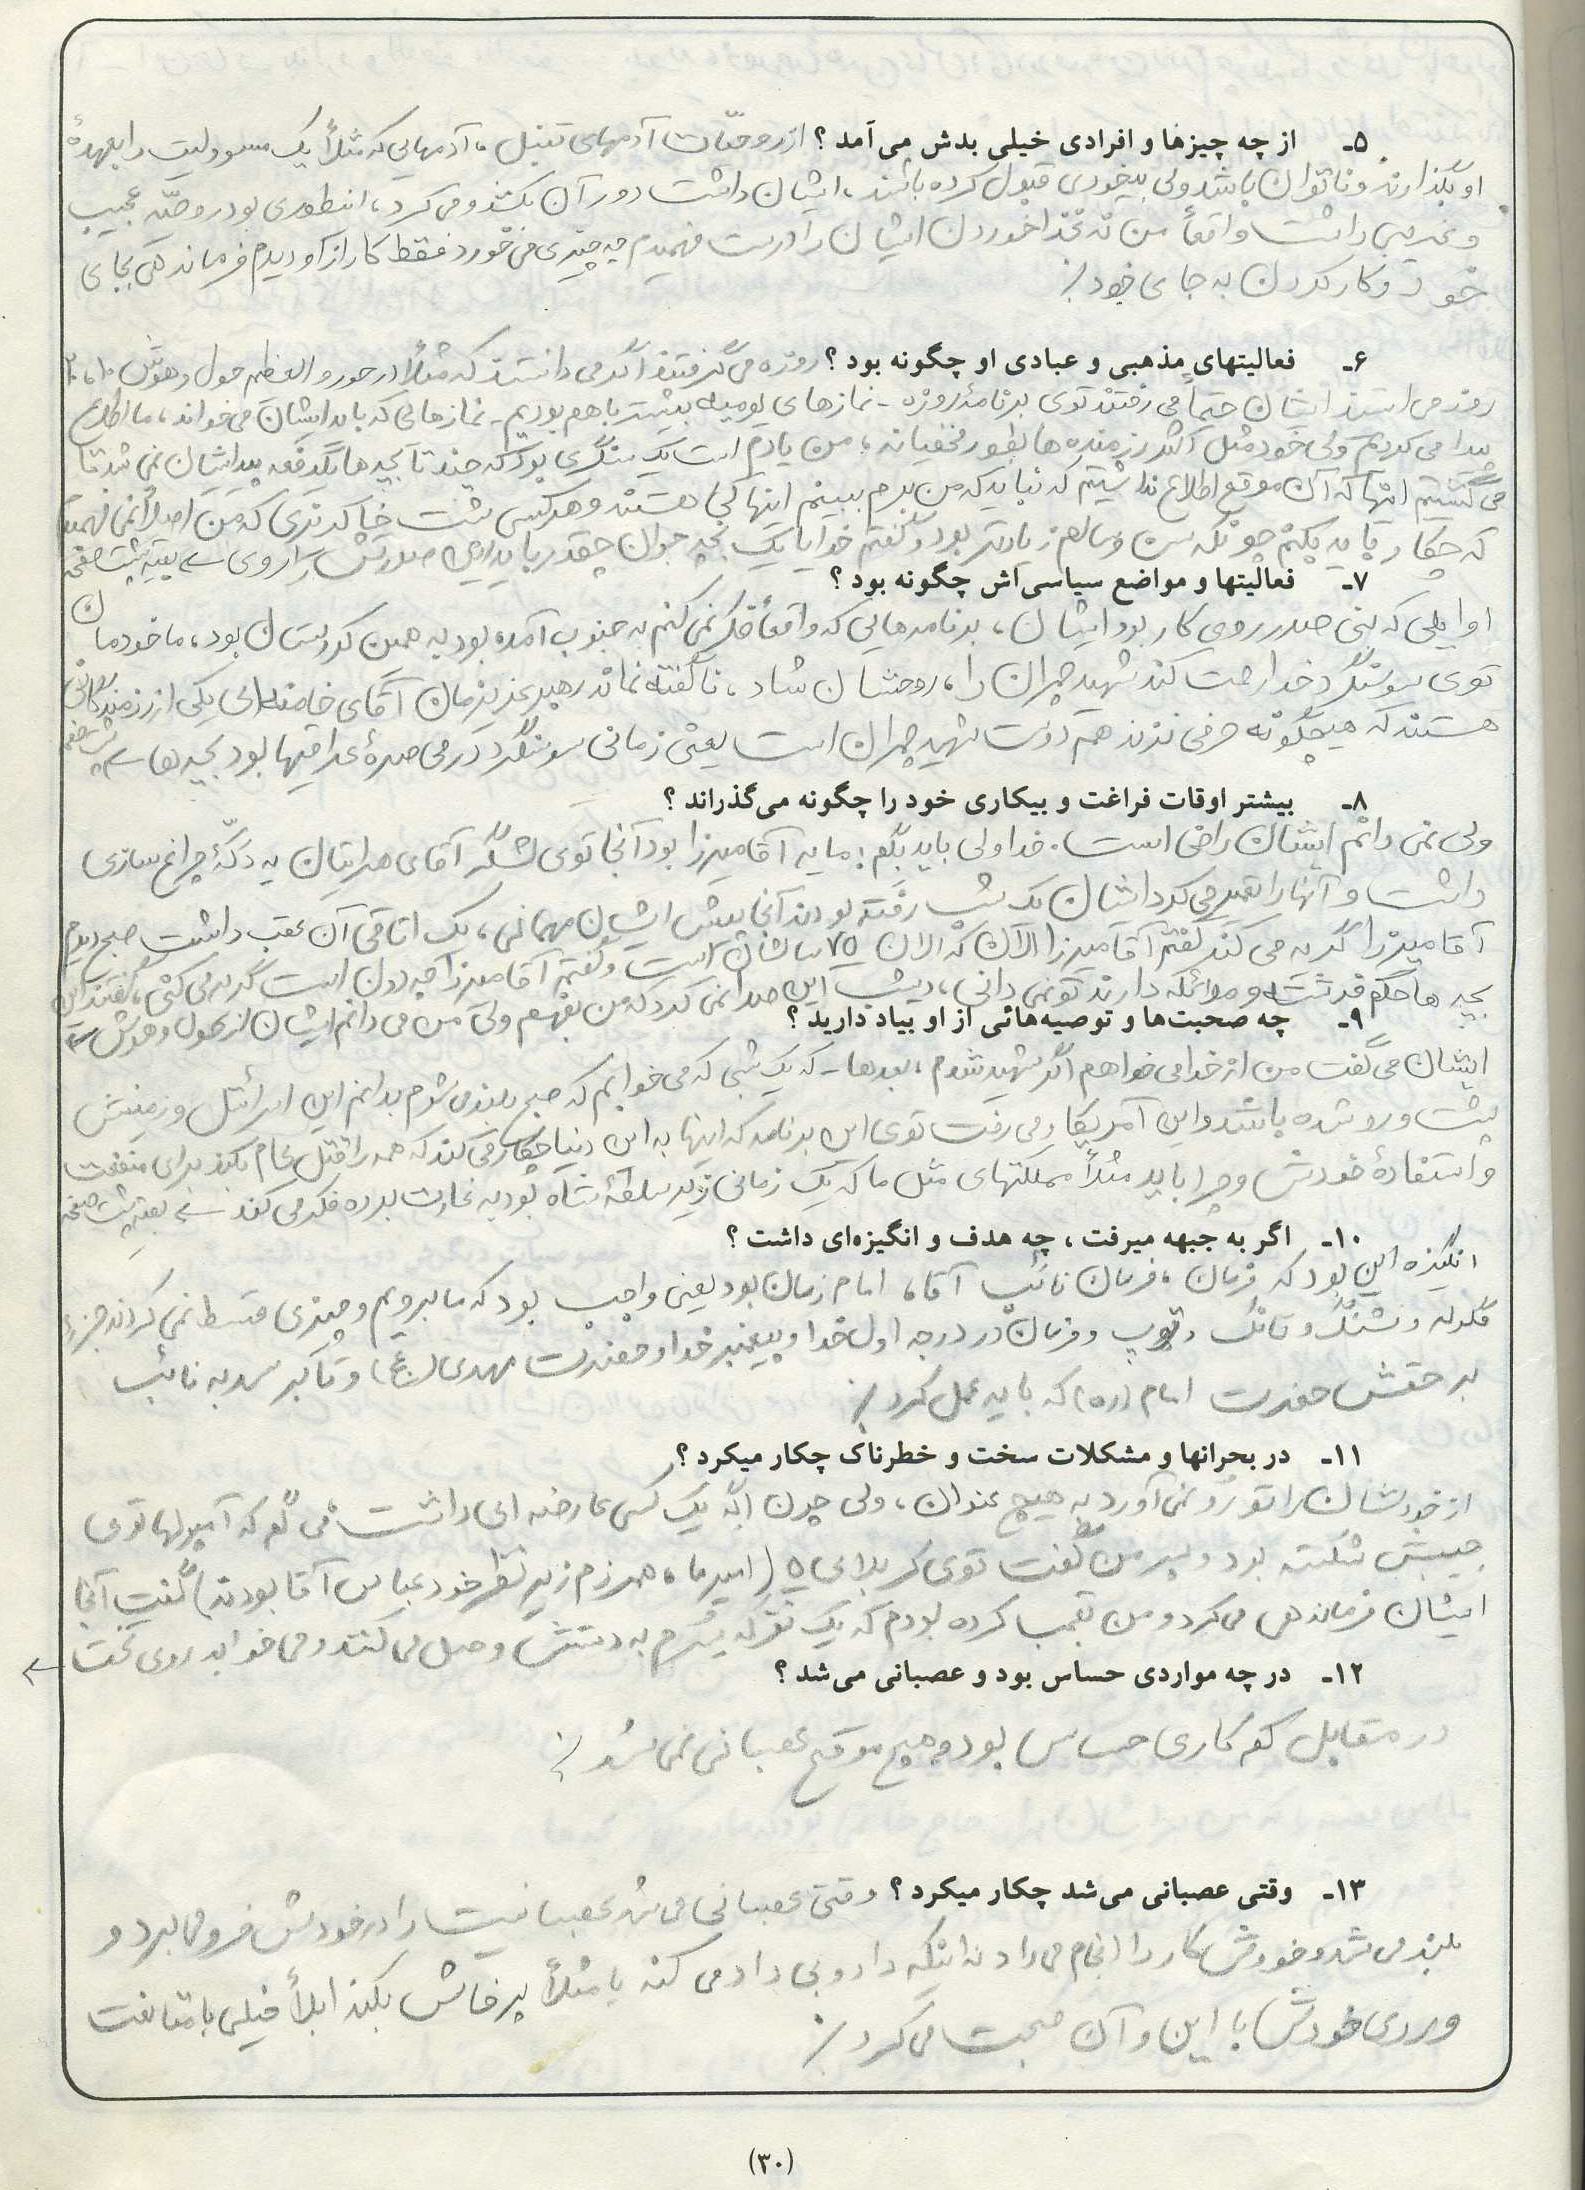 ۵ـ از چه چیزها و افرادی خیلی بدش می‌آمد ؟ از روحیّات آدمهای تنبل ، آدمهایی که مثلاً یک مسوولیت را بعهدهٔ
او بگذارند و ناتوان باشد ولی بیخودی قبول کرده باشند ، ایشان داشت دور آن می‌کرد ، اینطوری بود روحیّه عجیب
و غریبی داشت واقعاً من نه غذا خوردن ایشان را درست فهمیدم چه چیزی می‌خورد فقط کار از او دیدم فرماندهی بجای
خود و کار کردن به جای خود ./
۶ـ فعالیتهای مذهبی و عبادی او چگونه بود ؟ روزه می‌گرفتند اگر می‌دانستند که مثلاً در حور والعظیم حول و هوش ۱۰ ، ۲۰
روز می‌ایستد ایشان حتماً می‌رفتند توی برنامهٔ روزه ـ نمازهای یومیه بیشتر باهم بودیم ـ نمازهایی که باید ایشان می‌خواند ، ما اطلاع
پیدا می‌کردیم ولی خود مثل اکثر رزمنده‌ها بطور مخفیانه ، من یادم است یک سنگری بود که چند تا بچه‌ها یکدفعه پیدایشان نمی‌شد تا
می‌گشتیم انتها که آن موقع اطلاع نداشتیم که نباید که من بروم ببینم اینها کجا هستند و هر کسی پشت خاکریزی که من اصلاً نمی‌فهمیدم
که چکار باید بکنم چونکه سن و سالم زیادتر بود و گفتم خدایا یک بچه جوان چقدر باید این صورتش را روی ← بقیه پشت صفحه
۷ـ فعالیتها و مواضع سیاسی‌اش چگونه بود ؟
اوایلی که بنی صدر روی کار بود ایشان ، برنامه‌هایی که واقعاً فکر نمی‌کنم به جنوب آمده بود به همین کردستان بود ، ما خودمان
توی سوسنگرد خدا رحمت کند شهید چمران را ، روحشان شاد ، ناگفته نماند رهبر عزیزمان آقای خامنه‌ای یکی از رزمندگانی
هستند که هیچگونه حرفی نزدند هم دوست شهید چمران است یعنی زمانی سوسنگرد در محاصرهٔ عراقیها بود بچه‌ها ← پشت صفحه
۸ـ بیشتر اوقات فراغت و بیکاری خود را چگونه می‌گذراند ؟
ولی نمی‌دانم ایشان راضی است . خدا ولی باید بگم ; ما یه آقا میرزا بود آنجا توی لشگر آقای هم ایشان یه دکّهٔ چراغ سازی
داشت و آنها را تعمیر می‌کرد ایشان یک شب رفته بودند آنجا پیش ایشان مهمانی ، یک اتاقی آن عقب داشت صبح دیدم
آقا میرزا گریه می‌کند گفتم آقا میرزا الآن که الان ۷۵ سالشان است و گفتم آقا میرزا چه دون است گریه می‌کنی ، گفتند این
بچه‌ها حکم فرشته و ملائکه دارند تو نمی‌دانی ، دیشب این صدا نمی‌کرد که من بفهمم ولی من می‌دانم ایشان از حول و هوش ←
۹ـ چه صحبت‌ها و توصیه‌هائی از او بیاد دارید ؟
ایشان می‌گفت من از خدا می‌خواهم اگر شهید شدم ، بعدها ـ که یک شبی که می‌خوابم که صبح بلند می‌شوم بدانم این اسرائیل و زمینش
پشت و رو شده باشد و این آمریکا و می‌رفت توی این برنامه که اینها به این دنیا چکار می‌کند که همه را قتل عام بکند برای منفعت
و استفادهٔ خودش و چرا باید مثلاً مملکتهای مثل ما که یک زمانی زیر سلطهٔ شاه بود به غارت برده فکر می‌کند ← بقیه پشت صفحه
۱۰ـ اگر به جبهه میرفت ، چه هدف و انگیزه‌ای داشت ؟
انگیزه این بود که فرمان ، فرمان نائب آقا ، امام زمان بود یعنی واجب بود که ما برویم و چیزی قسط نمی‌کردند جزءِ
گلوله و فشنگ و تانک و توپ و فرمان در درجه اول خدا و پیغمبر خدا و حضرت مهدی (عج) و تا برسد به نائب
بر حقش حضرت امام (ره) که باید عمل کرد ./
۱۱ـ در بحرانها و مشکلات سخت و خطرناک چکار میکرد ؟
از خودشان را تو رو نمی‌آورد به هیچ عنوان ، ولی چون اگه یک کسی عارضه‌ای داشت می‌گم که آمپولها توی
جیبش شکسته بود و پسر من گفت توی کربلای ۵ (امیر ما ، همرزم زیر نظر خود عباس آقا بودند) گفت آنجا
ایشان فرماندهی می‌کرد و من تعجب کرده بودم که یک نفر که سُرم به دستش وصل می‌کنند و می‌خوابد روی تخت ←
۱۲ـ در چه مواردی حساس بود و عصبانی می‌شد ؟
در مقابل کم کاری حساس بود و هیچ موقع عصبانی نمی‌شد ./
۱۳ـ وقتی عصبانی می‌شد چکار میکرد ؟ وقتی عصبانی می‌شد عصبانیت را در خودش فرو می‌برد و
بلند می‌شد و خودش کار را انجام می‌داد نه اینکه داد و بی داد می‌کنه یا مثلاً پرخاش بکند ابداً خیلی با متانت
و مردی خودش با این و آن صحبت می‌کرد ./
(۳۰)